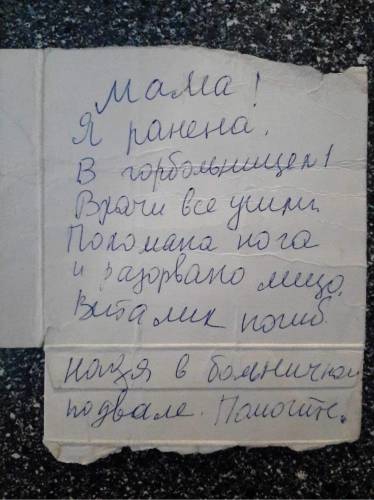 Мама!
Я ранена.
В горбольнице №1
Врачи все ушли.
Поломана нога
и разорвано лицо.
Виталик погиб.
Надя в больничном
подвале. Помогите.